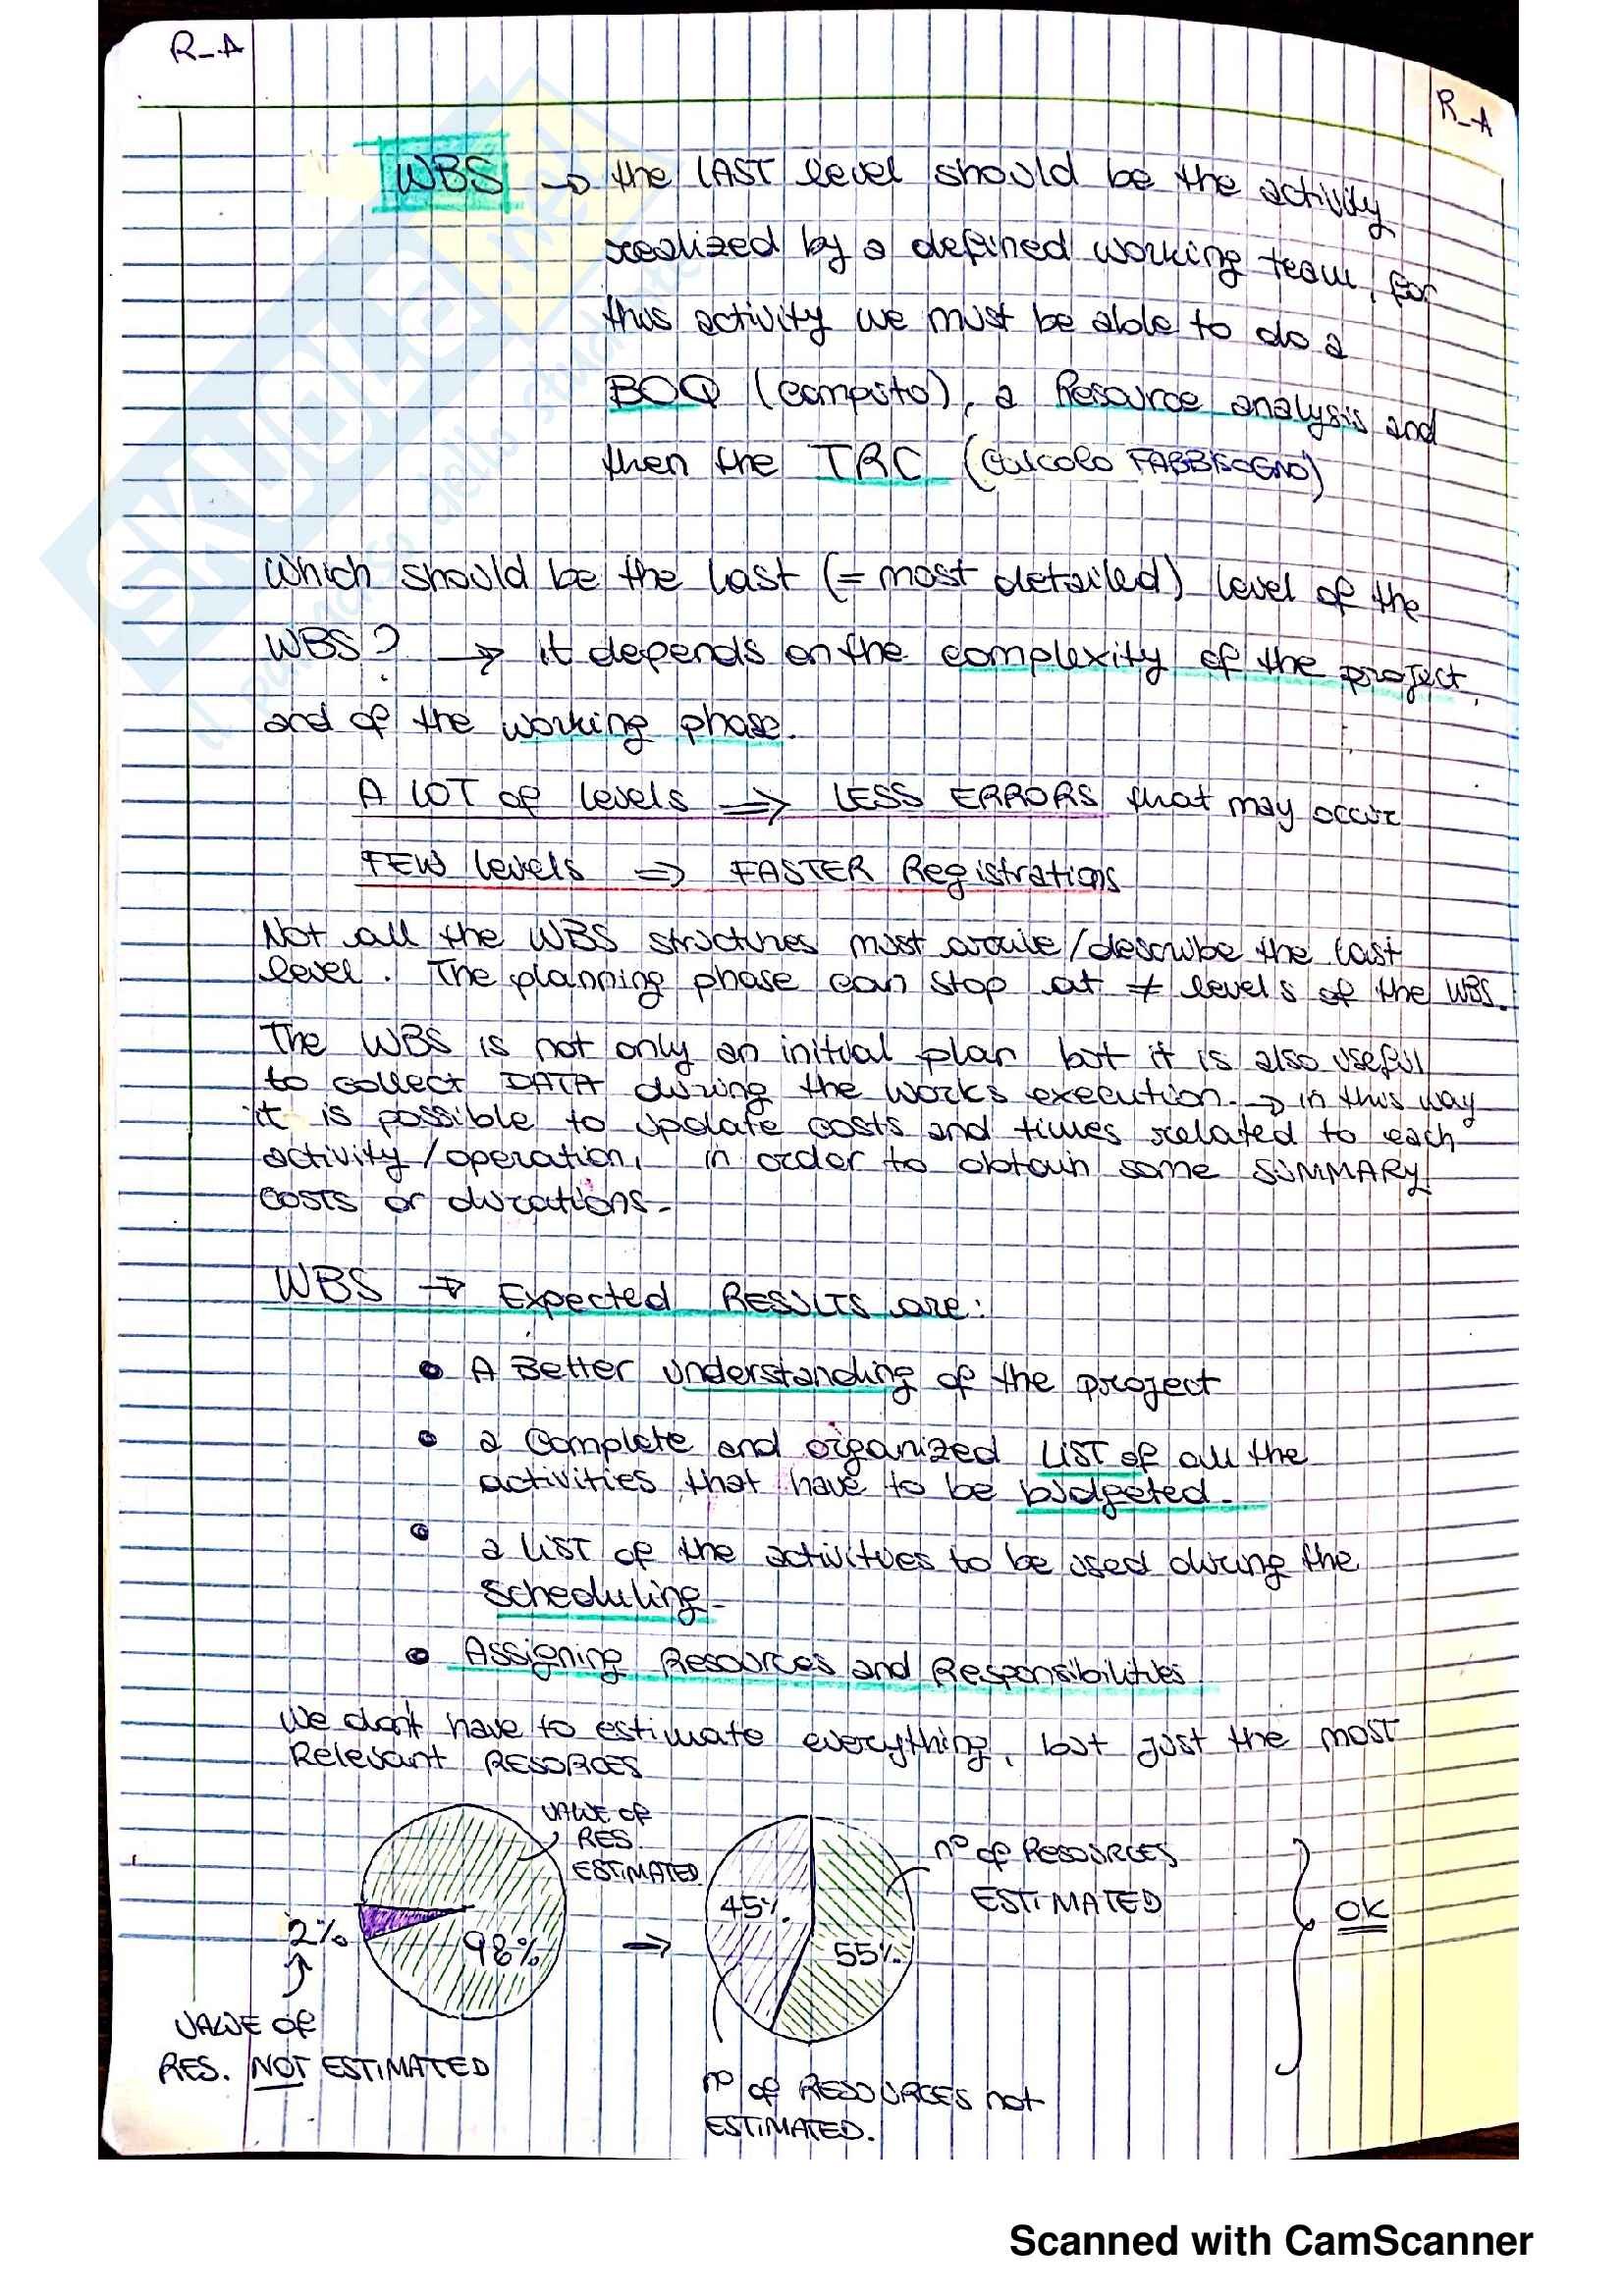 R_A
R_A
WBS → the LAST level should be the activity
realized by a defined working team, for
this activity we must be able to do a
BOQ (computo), a Resource analysis and
then the TRC (Calcolo FABBISOGNO)
Which should be the last (= most detailed) level of the
WBS? → it depends on the complexity of the project,
and of the working phase.
A LOT of levels ⇒ LESS ERRORS that may occur
FEW levels ⇒ FASTER Registrations
Not all the WBS structures must arrive/describe the last
level. The planning phase can stop at ≠ levels of the WBS.
The WBS is not only an initial plan but it is also useful
to collect DATA during the works execution → in this way
it is possible to update costs and times related to each
activity/operation, in order to obtain some SUMMARY
COSTS or durations-
WBS → Expected RESULTS are:
• A Better understanding of the project
• a Complete and organized LIST of all the
activities that have to be budgeted.
• a LIST of the activities to be used during the
Scheduling-
• Assigning Resources and Responsibilities
We don't have to estimate everything, but just the most
Relevant RESORCES
VALUE of
RES.
ESTIMATED
2%
98%
→
45%
55%
n° of RESOURCES
ESTIMATED
OK
VALUE of
RES. NOT ESTIMATED
n° of RESOURCES not
ESTIMATED.
Scanned with CamScanner